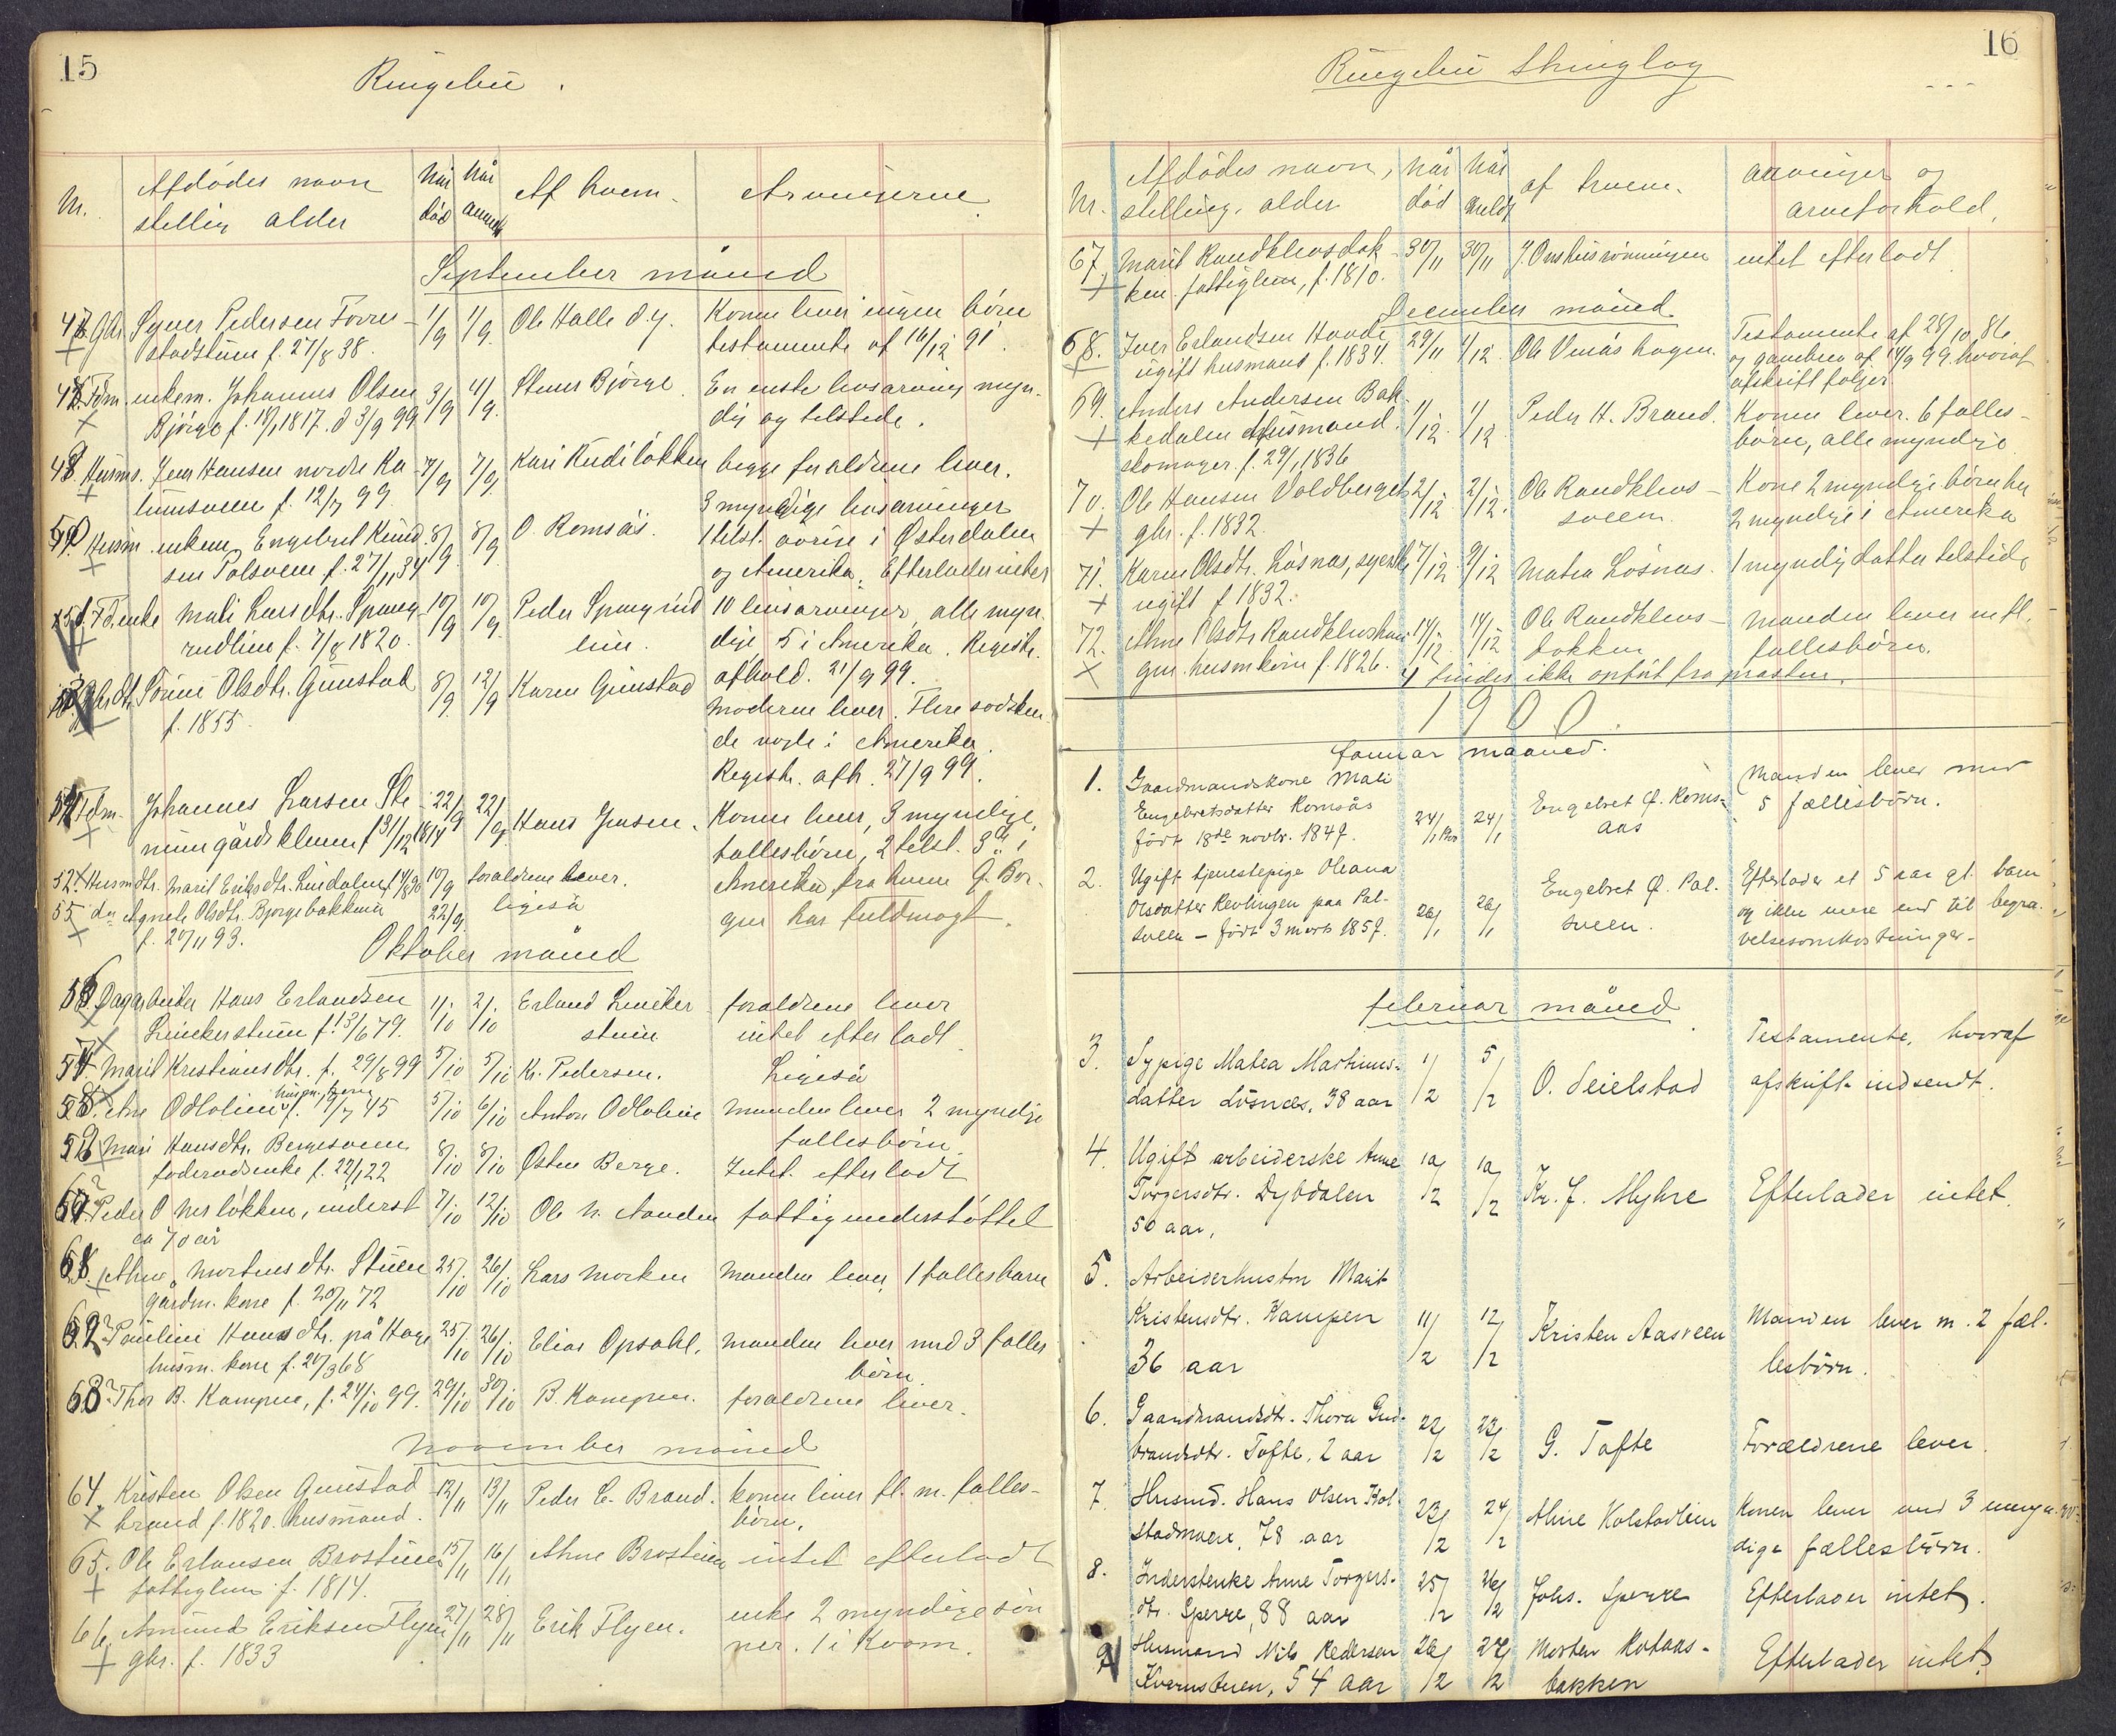 15
Ringebu.
Nr. Afdødes navn stilling alder Når død Når anmeldt Af hvem. Arvingerne
September måned
47. Gbr. Syver Pedersen Forre- 1/9 1/9. Ole Halle d.y. Konen lever ingen børn
stadstuen f. 27/8 38. testamente af 16/12 91.
48. Fdm. enkem. Johannes Olsen 3/9 4/9. Stener Bjørge. En eneste livsarving myn-
Bjørge f. 18/1 1817. d 3/9 99 dig og tilstede.
49. Husms. Jens Hansen nordre 7/9 7/9 Kari Rudiløkken begge forældrene lever.
f. 12/7 99
3 myndige livsarvinger
50. Husm. enkem. Engebret Knud- 8/9. 8/9 O. Romsås. 1 tilst. øvrige i Østerdalen
sen Pålsveen f. 27/11 34 og Amerika. Efterlader intet
51. Fd. enke Mali Larsdtr. Spang- 10/9 10/9. Peder Spangrud 10 livsarvinger, alle myn-
rudlien f. 7/8 1820. lien. dige 5 i Amerika. Registr.
afhold. 21/9 99.
Gbr. dtr. Olsdtr. Gunstad 8/9. 12/9 Karen Gunstad
f. 1855. Moderen lever. Flere sødsken-
de nogle i Amerika.
Registr. afh. 27/9 99.
54. Fdm. Johannes Larsen Ste- 22/9 22/9. Hans Jensen. Konen lever, 3 myndige
f 31/12 1814 fællesbørn, 2 tilst. 3die i
Husmdtr. Marit Eriksdtr. Lindalen 10/9 forældrene lever. Amerika fra hvem G. Bor-
55 do Agnete Olsdtr. Bjørgebakken 22/9. ligeså gen har fuldmagt.
f. 20/11 93.
Oktober måned
Dagarbeider Hans Erlandsen 1/10 2/10 Erland forældrene lever
f. 13/6 79. stuen intet efterladt
57 Marit Kristiansdtr. f. 29/8 99 5/10 5/10 Kr. Pedersen. Ligeså
58. Ane Odlolien husm. kone f. 17/7 45 5/10 6/10 Anton Odlolien manden lever 2 myndige
fællesbørn
59 Mari Hansdtr. Bergesveen 8/10 8/10 Østen Berge. Intet efterladt
føderådsenke f. 22/1 22
60. Peder O løkken, inderst 7/10 12/10 Ole N. Aanden fattigunderstøttet
ca 70 år
Ane Mortensdtr. Stuen 25/10 26/10 Lars Morken Manden lever, 1 fællesbarn
gårdm. kone f. 20/11 72
62. Pauline Hansdtr. på Hage 25/10 26/10 Elias Opsahl. manden lever med 3 fælles
husm. kone f. 20/3 68 børn
63. Thor B. Kampen, f. 24/10 99. 29/10 30/10 B. Kampen. forældrene lever.
November måned
64. Kristen Olsen Gunstad 12/11 13/11 Peder C. Brand. konen lever fl. m. fælles-
brænd f. 1820. husmand. børn.
65. Ole Erlansen Brostuen 15/11 16/11 Ane Brostuen intet efterladt
fattiglem f. 1814.
66. Amund Eriksen Flyen 27/11 28/11 Erik Flyen. enke 2 myndige søn
gbr. f. 1833 ner. 1 i Kvam.
16
Ringebu thinglag
Nr. Afdødes navn, stilling, alder Når død Når meldt af hvem. arvinger og arveforhold.
67. Marit Randklevsbak- 30/11 30/11 J. Onshusrønningen intet efterladt
ken. fattiglem, f. 1810.
December måned
68. Iver Erlandsen Haade 29/11 1/12. Ole Venås hagen. Testamente af 28/10 86
ugift husmand f. 1834. og gavebrev af 14/9 99. hvoraf
afskrift følger.
69. Anders Andersen Bak- 1/12. 1/12 Peder H. Brand. Konen lever. 6 fælles-
kedalen Husmand. børn, alle myndige
skomager. f. 29/1 1836
70. Ole Hansen Voldberget 2/12 2/12. Ole Randklevs- Kone 2 myndige børn her
gbr. f. 1832. sveen. 2 myndige i Amerika
71. Karen Olsdtr. Løsnæs, 7/12. 9/12 Matea Løsnæs. 1 myndig datter tilstede
ugift f 1832.
72. Ane Olsdtr Randklevshau- 14/12. 14/12 Ole Randklevs- Manden lever m fl.
gen. husm kone f. 1826. bakken fællesbørn.
4 findes ikke opført fra præsten.
1900.
januar maaned.
1. Gaardmandskone Mali
Engebretsdatter Romsås 24/1 24/1 Engebret Ø. Roms- Manden lever med
født 18de novbr. 1847. aas 5 fællesbørn.
2. Ugift tjenestepige Oleana
Olsdatter Kevlingen paa Pål- 26/1 26/1 Engebret Ø. Pål- Efterlader et 5 aar gl. barn
sveen – født 3 mars 1857. sveen. og ikke mere end til begra-
velsesomkostninger.
februar måned
3. Sypige Matea Martinus- 1/2 5/2 O. Seielstad Testamente, hvoraf
datter Løsnæs, 38 aar afskrift indsendt.
4. Ugift arbeiderske Anne 10/2 10/2 Kr. J. Myhre Efterlader intet.
Torgersdtr. Dybdalen
50 aar.
5. Arbeiderhustru Marit
Kristensdtr. Kampen 11/2 12/2 Kristen Aasveen Manden lever m. 2 fæl-
36 aar lesbørn.
6. Gaardmandsdtr. Thora Gud- 22/2 23/2 G. Tofte Forældrene lever.
brandsdtr. Tofte, 2 aar
7. Husmd. Hans Olsen Kol- 23/2 24/2 Aline Kolstadlien Konen lever med 3 umyn-
stadmoen, 78 aar dige fællesbørn.
8. Inderstenke Anne Torgers- 25/2 26/2 Johs. Sperre Efterlader intet.
dtr. Sperre, 88 aar
9. Husmand Nils Pedersen 26/2 27/2 Morten Efterlader intet.
Kvernstuen, 54 aar bakken